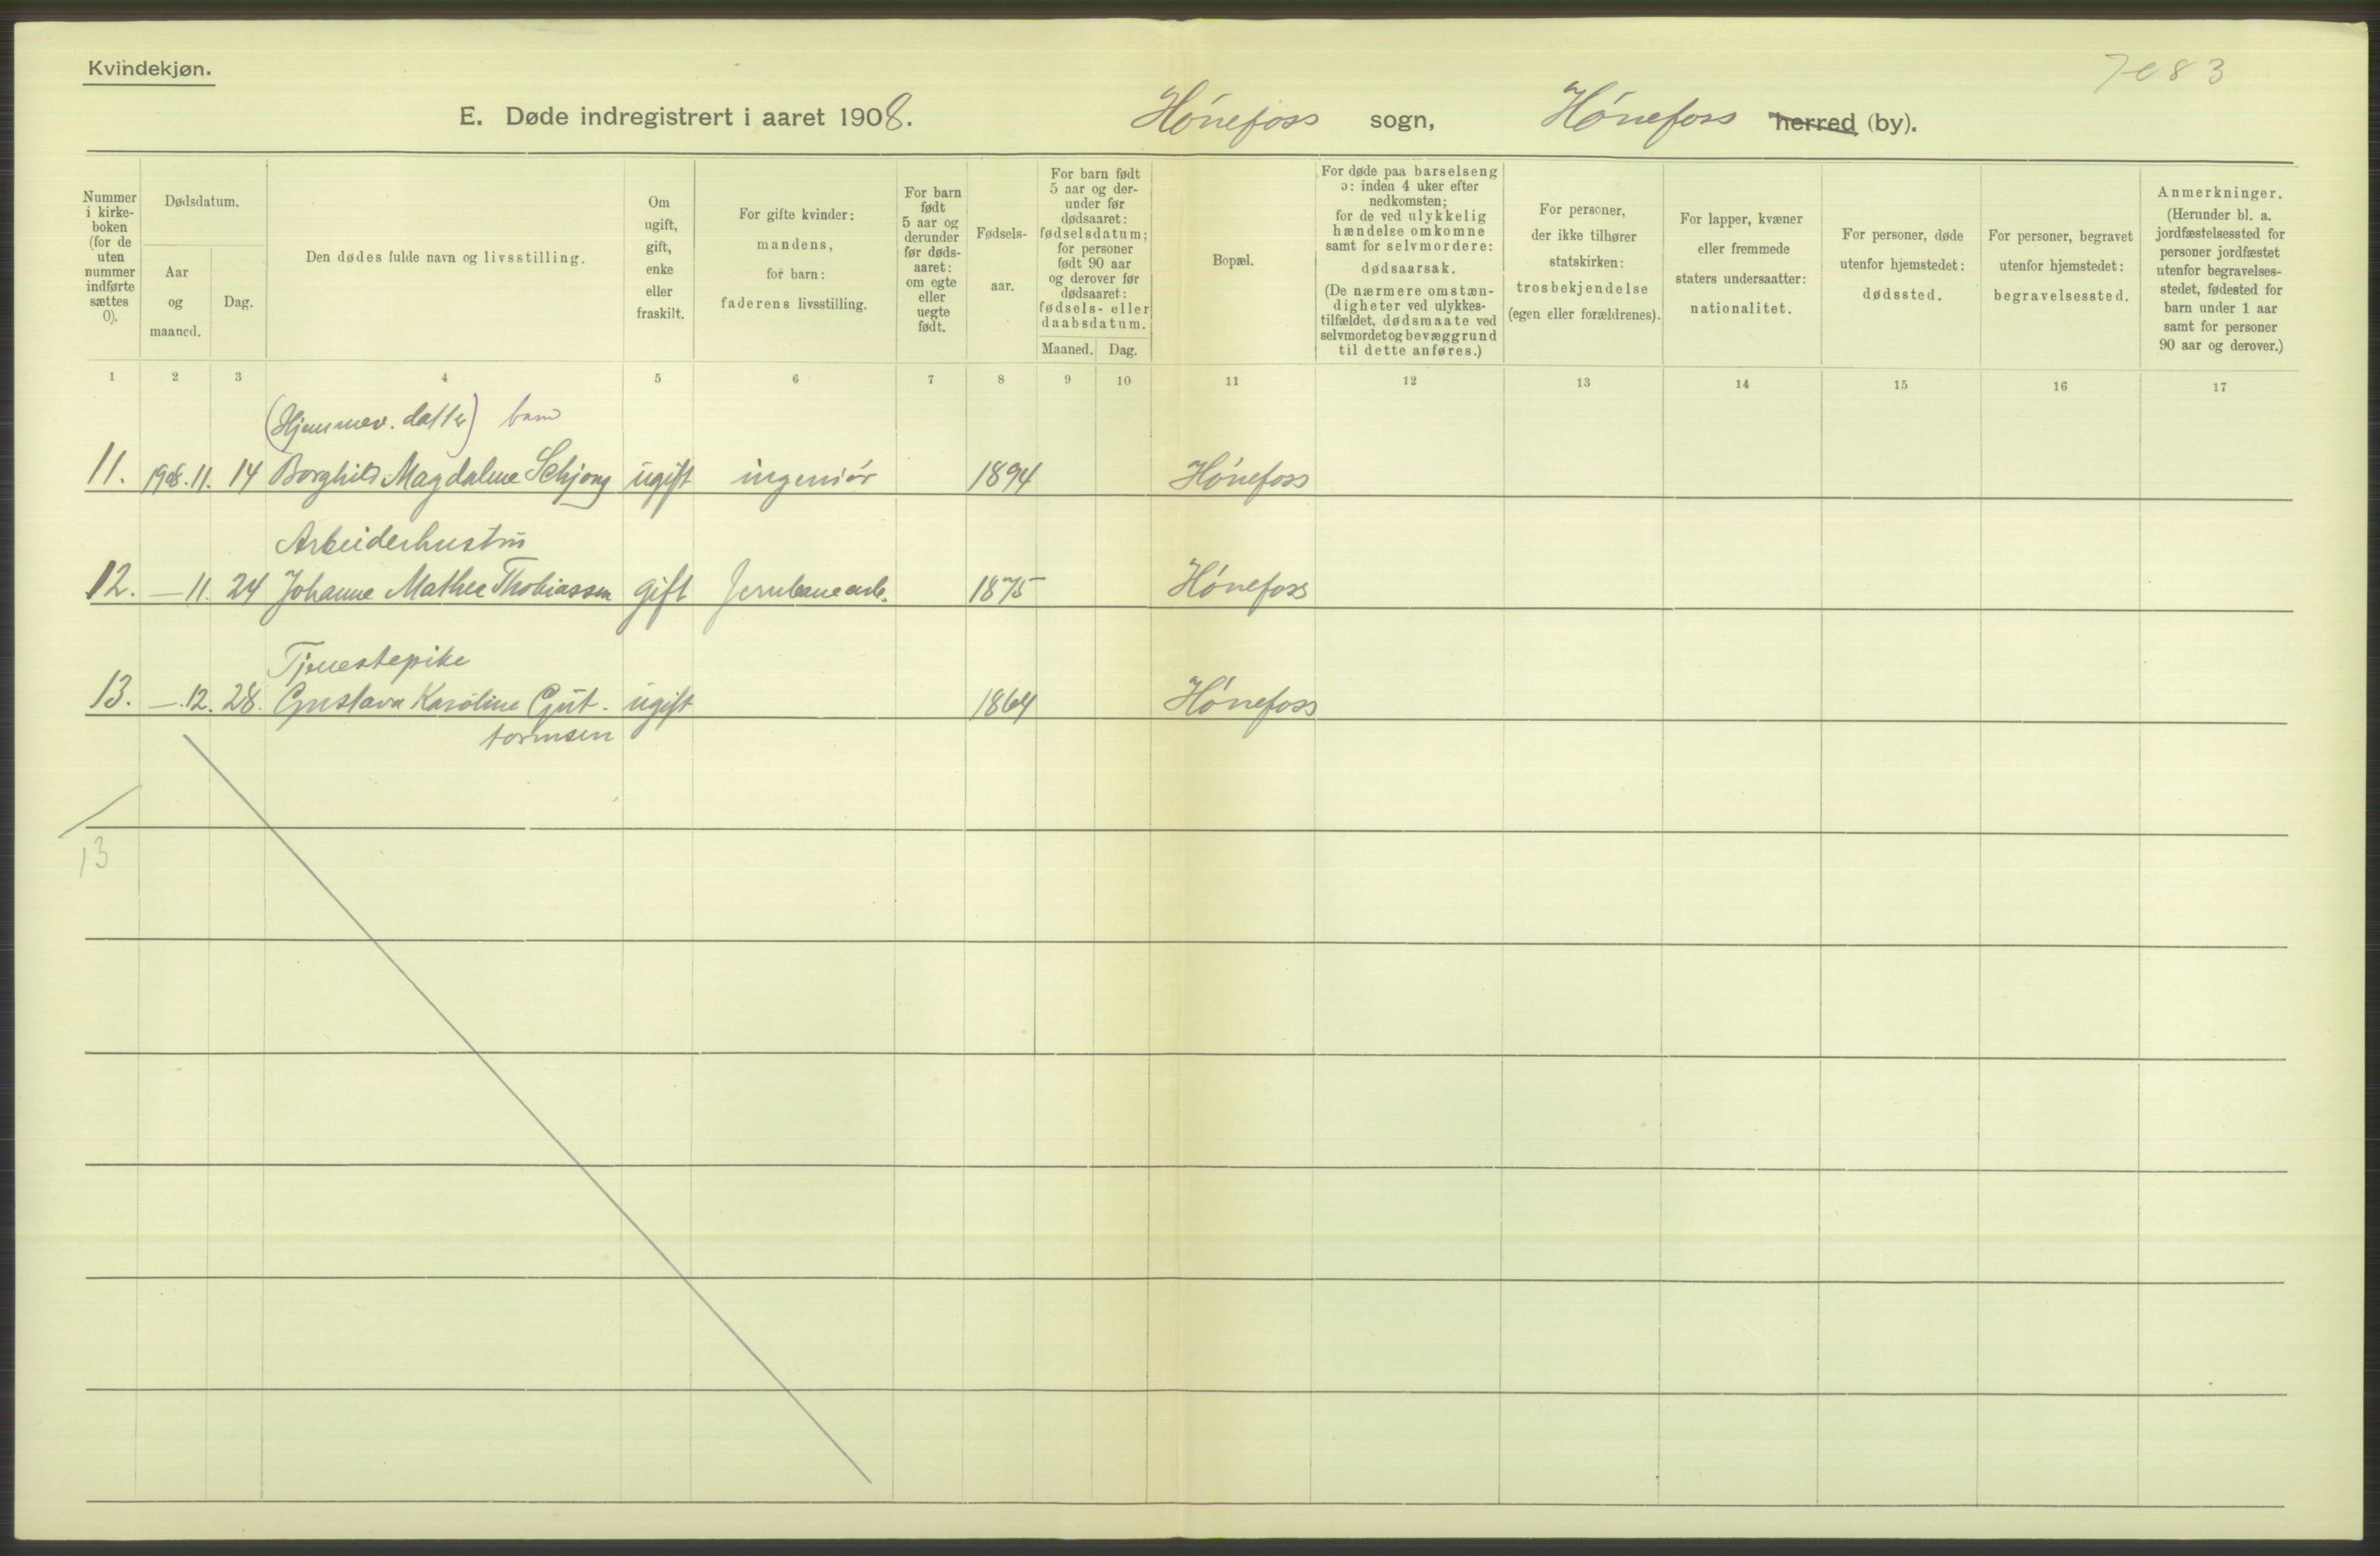 Kvindekjøn.
7083
E. Døde indregistrert i aaret 1908. Hónefoss sogn, Hónefoss herred (by).
Nummer
i kirke-
boken
(for de
uten
nummer
indførte
sættes
0).
Dødsdatum.
Aar
og
maaned.
Dag.
Den dødes fulde navn og livsstilling.
Om
ugift,
gift,
enke
eller
fraskilt.
For gifte kvinder:
mandens,
for barn:
faderens livsstilling.
For barn
født
5 aar og
derunder
før døds-
aaret:
om egte
eller
uegte
født.
Fødsels-
aar.
For barn født
5 aar og der-
under før
dødsaaret:
fødselsdatum;
for personer
født 90 aar
og derover før
dødsaaret:
fødsels- eller
daabsdatum.
Maaned. Dag.
Bopæl.
For døde paa barselseng
ɔ: inden 4 uker efter
nedkomsten;
for de ved ulykkelig
hændelse omkomne
samt for selvmordere:
dødsaarsak.
(De nærmere omstæn-
digheter ved ulykkes-
tilfældet, dødsmaate ved
selvmordet og bevæggrund
til dette anføres.)
For personer,
der ikke tilhører
statskirken:
trosbekjendelse
(egen eller forældrenes).
For lapper, kvæner
eller fremmede
staters undersaatter:
nationalitet.
For personer, døde
utenfor hjemstedet:
dødssted.
For personer, begravet
utenfor hjemstedet:
begravelsessted.
Anmerkninger.
(Herunder bl. a.
jordfæstelsessted for
personer jordfæstet
utenfor begravelses-
stedet, fødested for
barn under 1 aar
samt for personer
90 aar og derover.)
1 2 3 4 5 6 7 8 9 10 11 12 13 14 15 16 17
(Hjemmev. datter) barn
11. 1908.11. 14 Borghild Magdalene Schjong ugift ingeniór 1894 Hónefoss
Arbeiderhustru
12. — 11. 24 Johanne Mathea Thobiassen gift Jernbanearb. 1875 Hónefoss
Tjenestepike
13. —.12. 28. Gustava Karoline Gut- ugift 1864 Hónefoss
tormsen
13